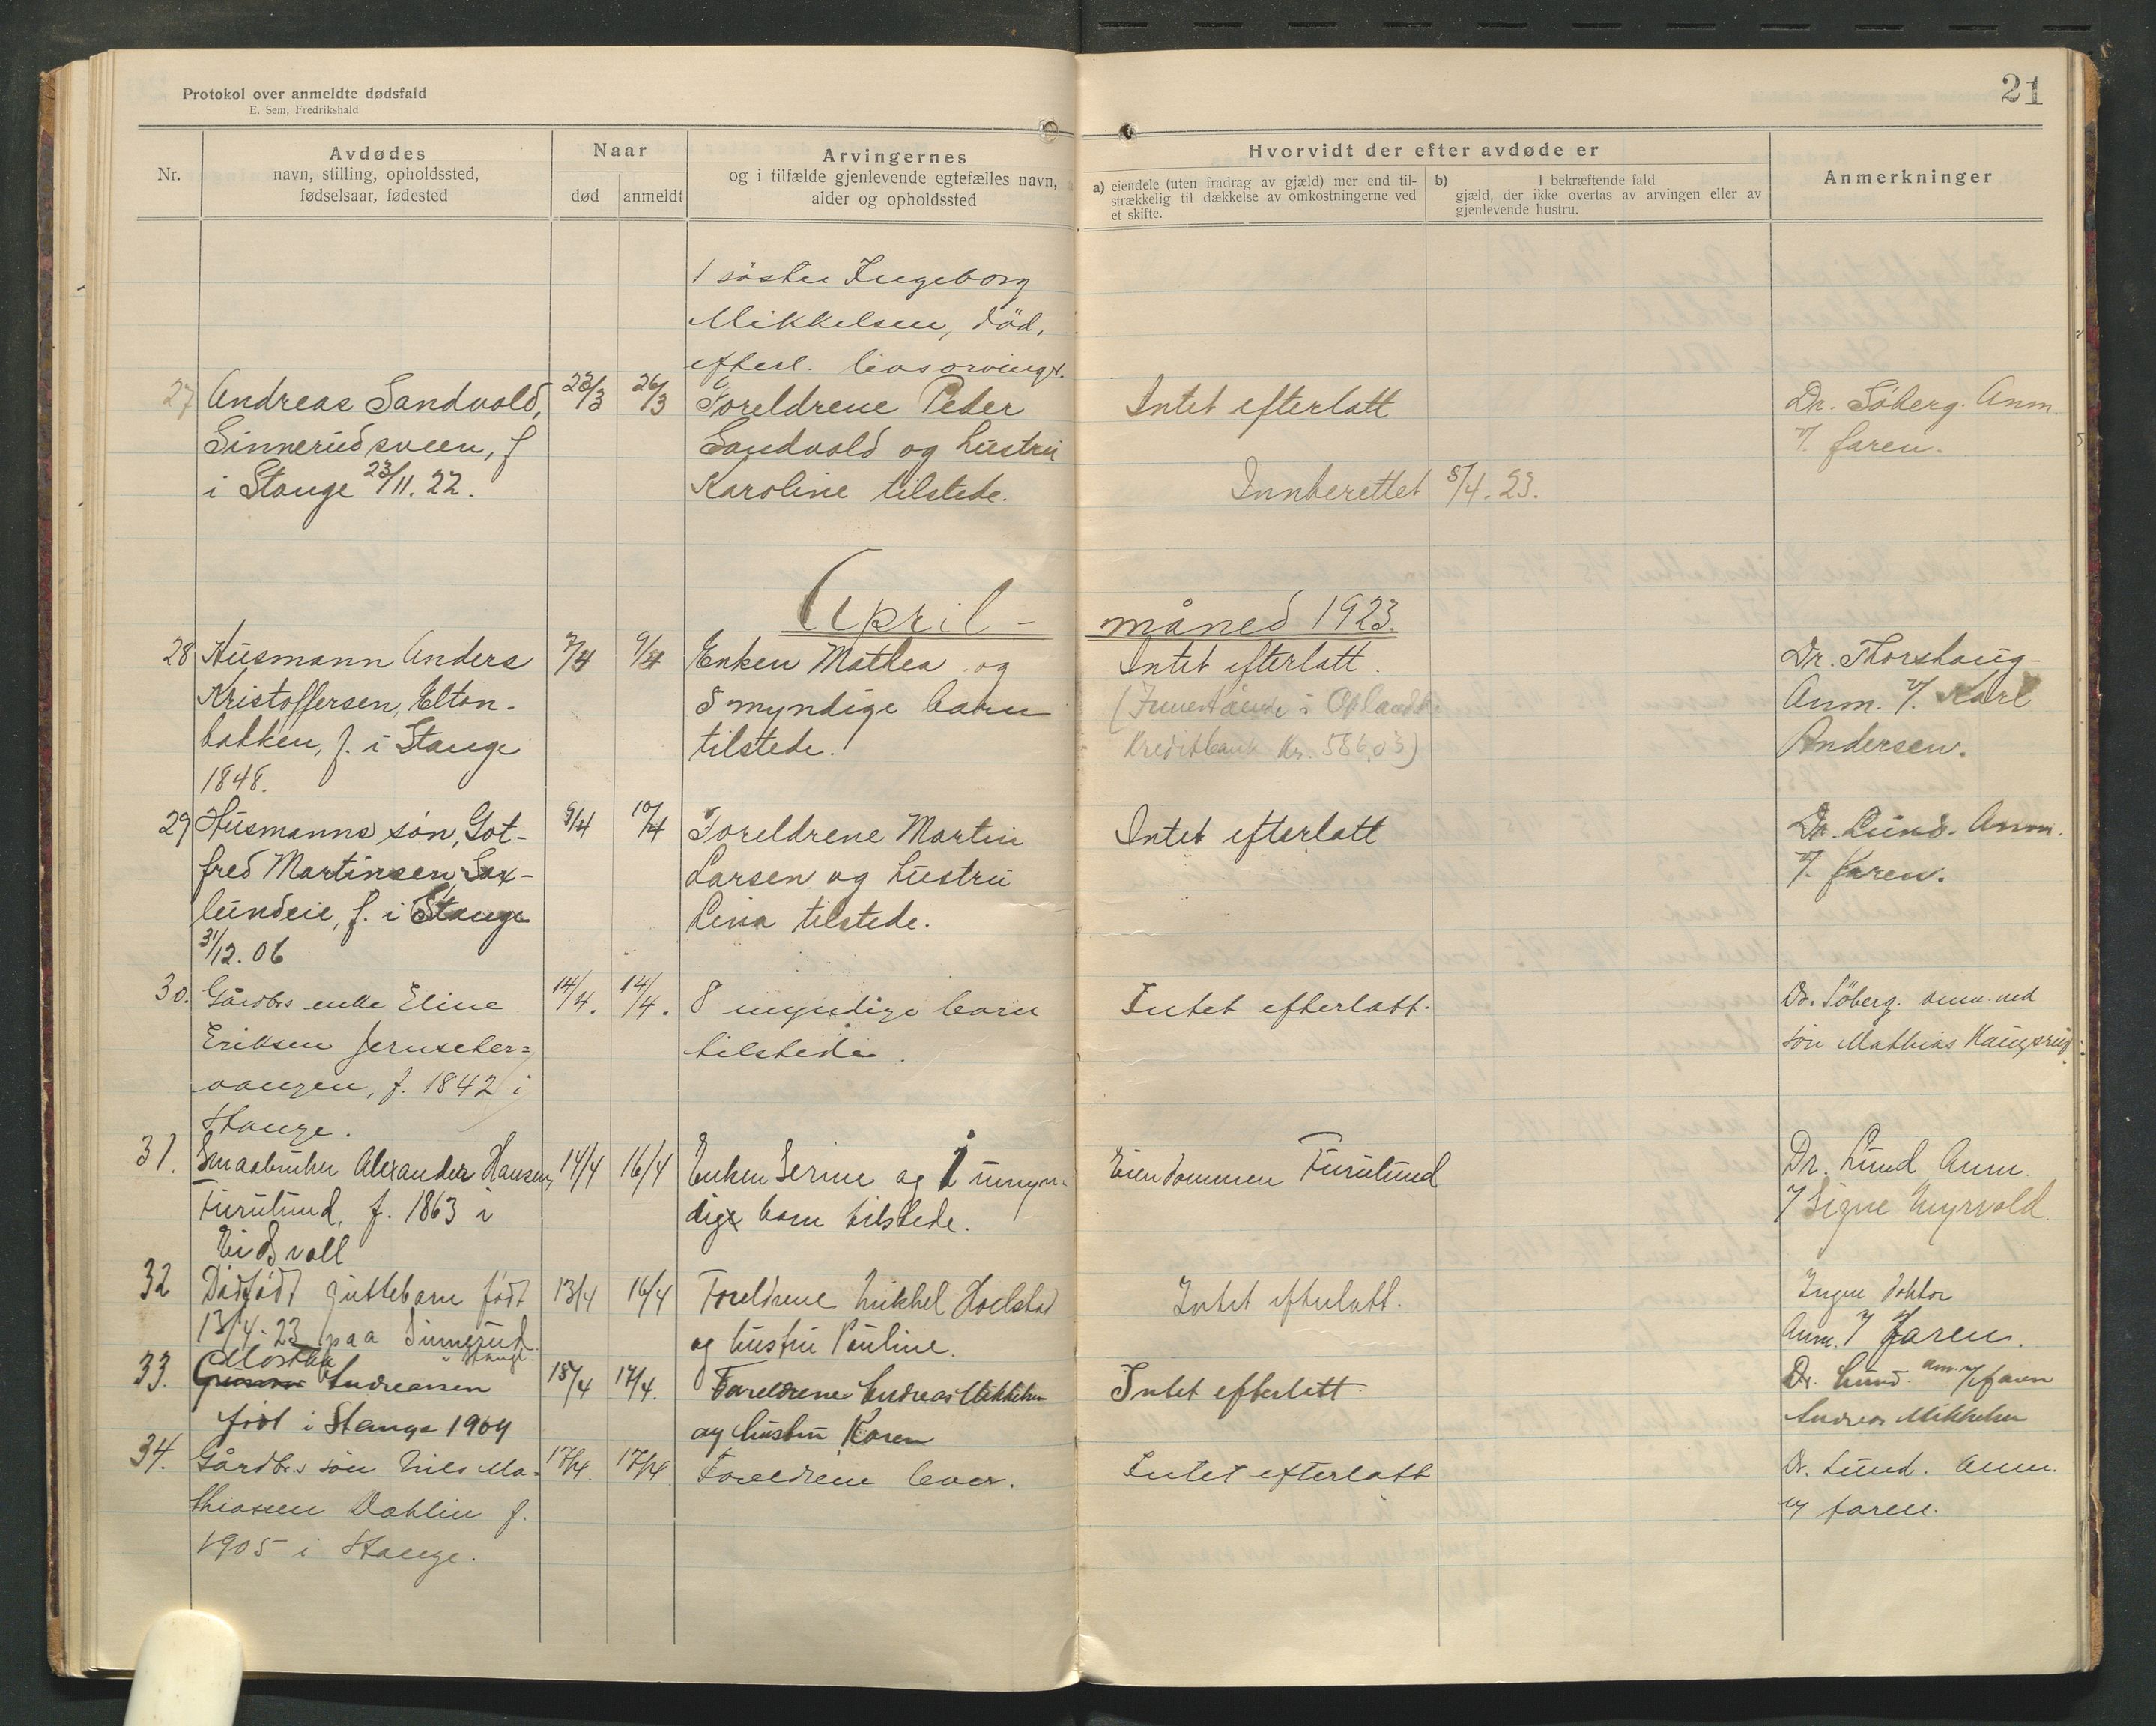 Protokol over anmeldte dødsfald
E. Sem, Fredrikshald
21
Nr.
Avdødes
navn, stilling, opholdssted,
fødselsaar, fødested
Naar
død
anmeldt
Arvingernes
og i tilfælde gjenlevende egtefælles navn,
alder og opholdssted
Hvorvidt der efter avdøde er
a) eiendele (uten fradrag av gjæld) mer end til-
strækkelig til dækkelse av omkostningerne ved
et skifte.
b) I bekræftende fald
gjæld, der ikke overtas av arvingen eller av
gjenlevende hustru.
Anmerkninger
1 søster Ingeborg
Mikkelsen, død,
efterl. livsarvinger.
27 Andreas Sandvold, 23/3 26/3 Foreldrene Peder Intet efterlatt Dr. Söberg. Anm.
Sinnerudsveen, f Sandvold og hustru v/ faren.
i Stange 23/11.22. Karoline tilstede. Innberettet 5/4.23.
April - måned 1923.
28 Husmann Anders 7/4 9/4 Enken Mathea og Intet efterlatt. Dr. Thorshaug-
Kristoffersen, Elton- 8 myndige barn (Innestående i Oplandske Anm. v/ Karl
bakken, f. i Stange tilstede. Kreditbank Kr. 586,03) Andersen.
1848.
29 Husmanns søn, Got- 9/4 10/4 Foreldrene Martin Intet efterlatt Dr. Lund. Anm.
fred Martinsen, Sax- Larsen og hustru v/ faren.
lundeie, f. i Stange Lina tilstede.
31/12.06
30. Gårdbrs enke Eline 14/4. 14/4. 8 myndige barn Intet efterlatt. Dr. Söberg. anm. ved
Eriksen Jernseter= tilstede. søn Mathias Haugsrud
vangen, f. 1842 i
Stange.
31. Smaabruker Alexander Hansen, 14/4 16/4 Enken Serine og 1 umyn- Eiendommen Furulund Dr. Lund Anm.
Furulund, f. 1863 i dige barn tilstede. v/ Signe Myrvold
Eidsvoll
32 Dødfødt guttebarn født 13/4 16/4 Foreldrene Mikkel Hoelstad Intet efterlatt. Ingen doktor
13/4.23 paa Sinnerud og hustru Pauline. Anm. v/ faren.
Stange.
33. Andreassen 15/4 17/4. Foreldrene Andreas Mikkelsen Intet efterlatt Dr. Lund. anm. v/ faren
født i Stange 1904 og hustru Karen Andreas Mikkelsen
34. Gårdbrs søn Nils Ma- 17/4. 17/4 Foreldrene lever. Intet efterlatt Dr. Lund. Anm.
thiassen Dahlin f. v/ faren.
1905 i Stange.